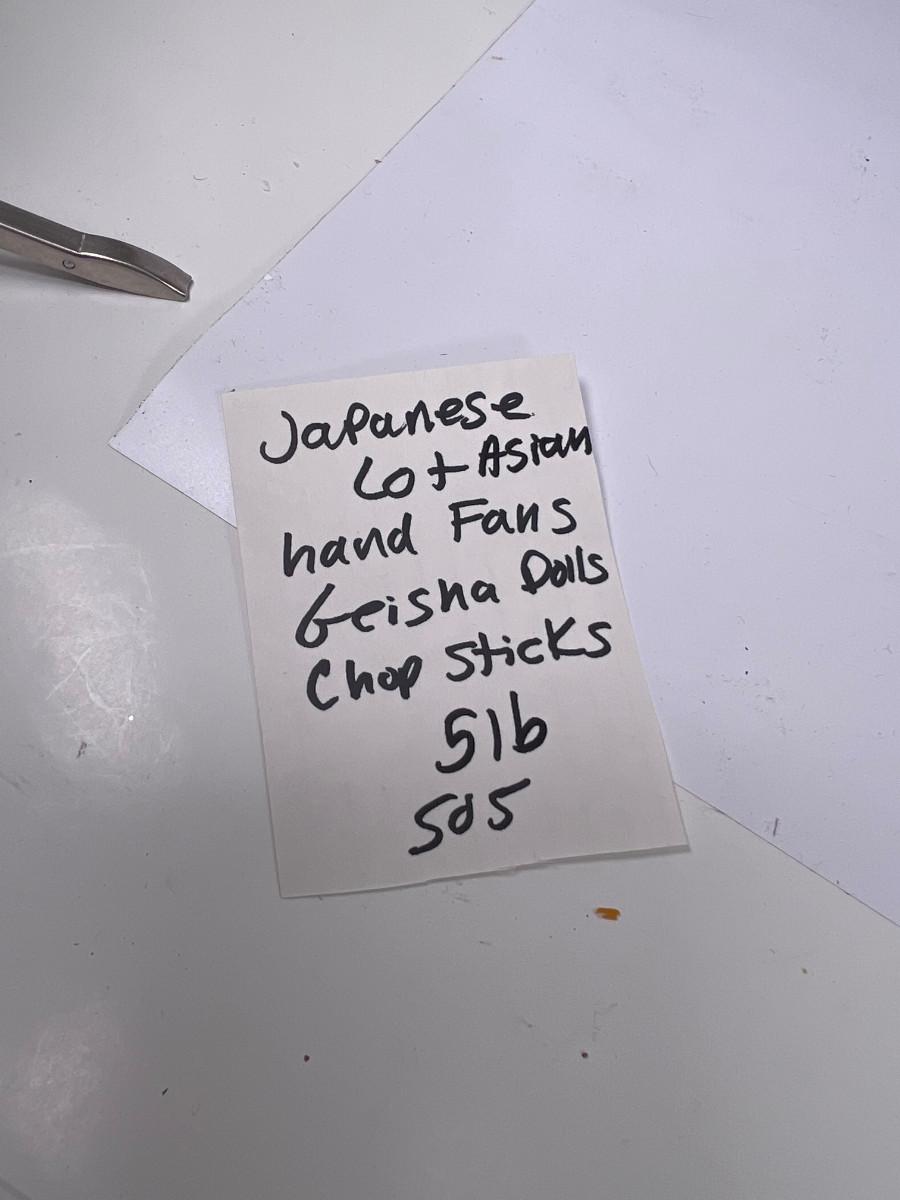 Japanese
Lot Asian
hand Fans
Geisha Dolls
Chop Sticks
5lb
505